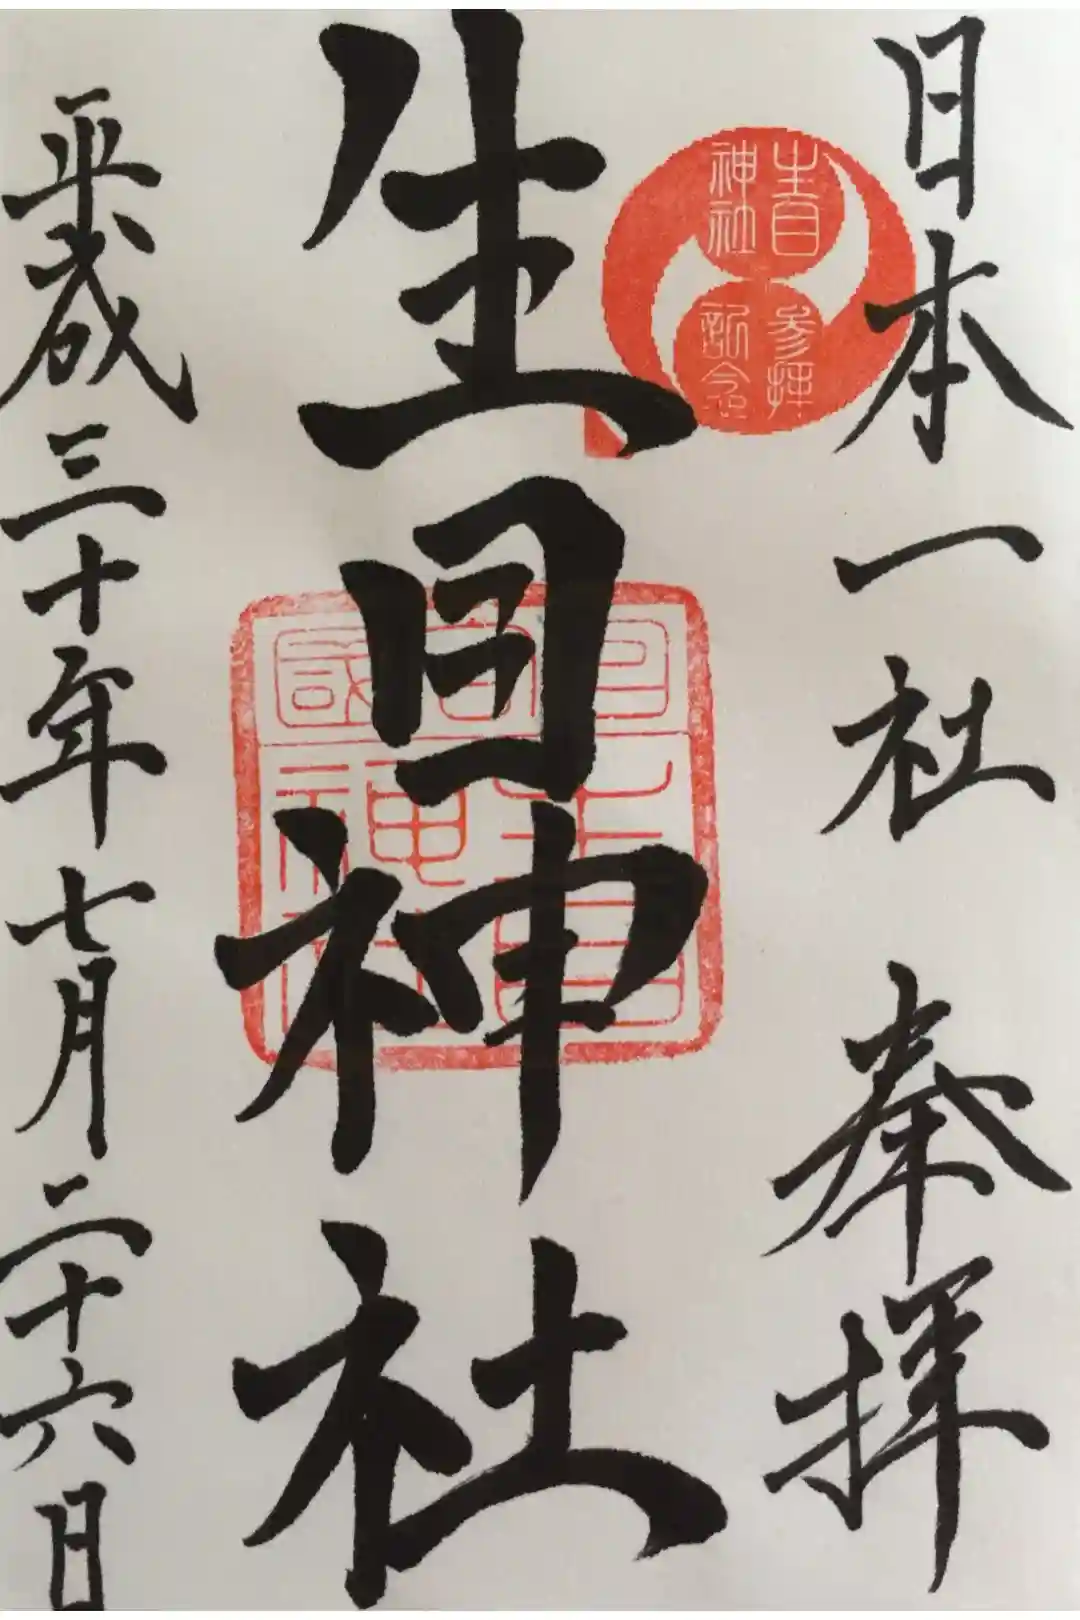 日本一社 奉拝
生目神社 参拝記念
生目神社
日向国 生目神社
平成三十年七月二十六日